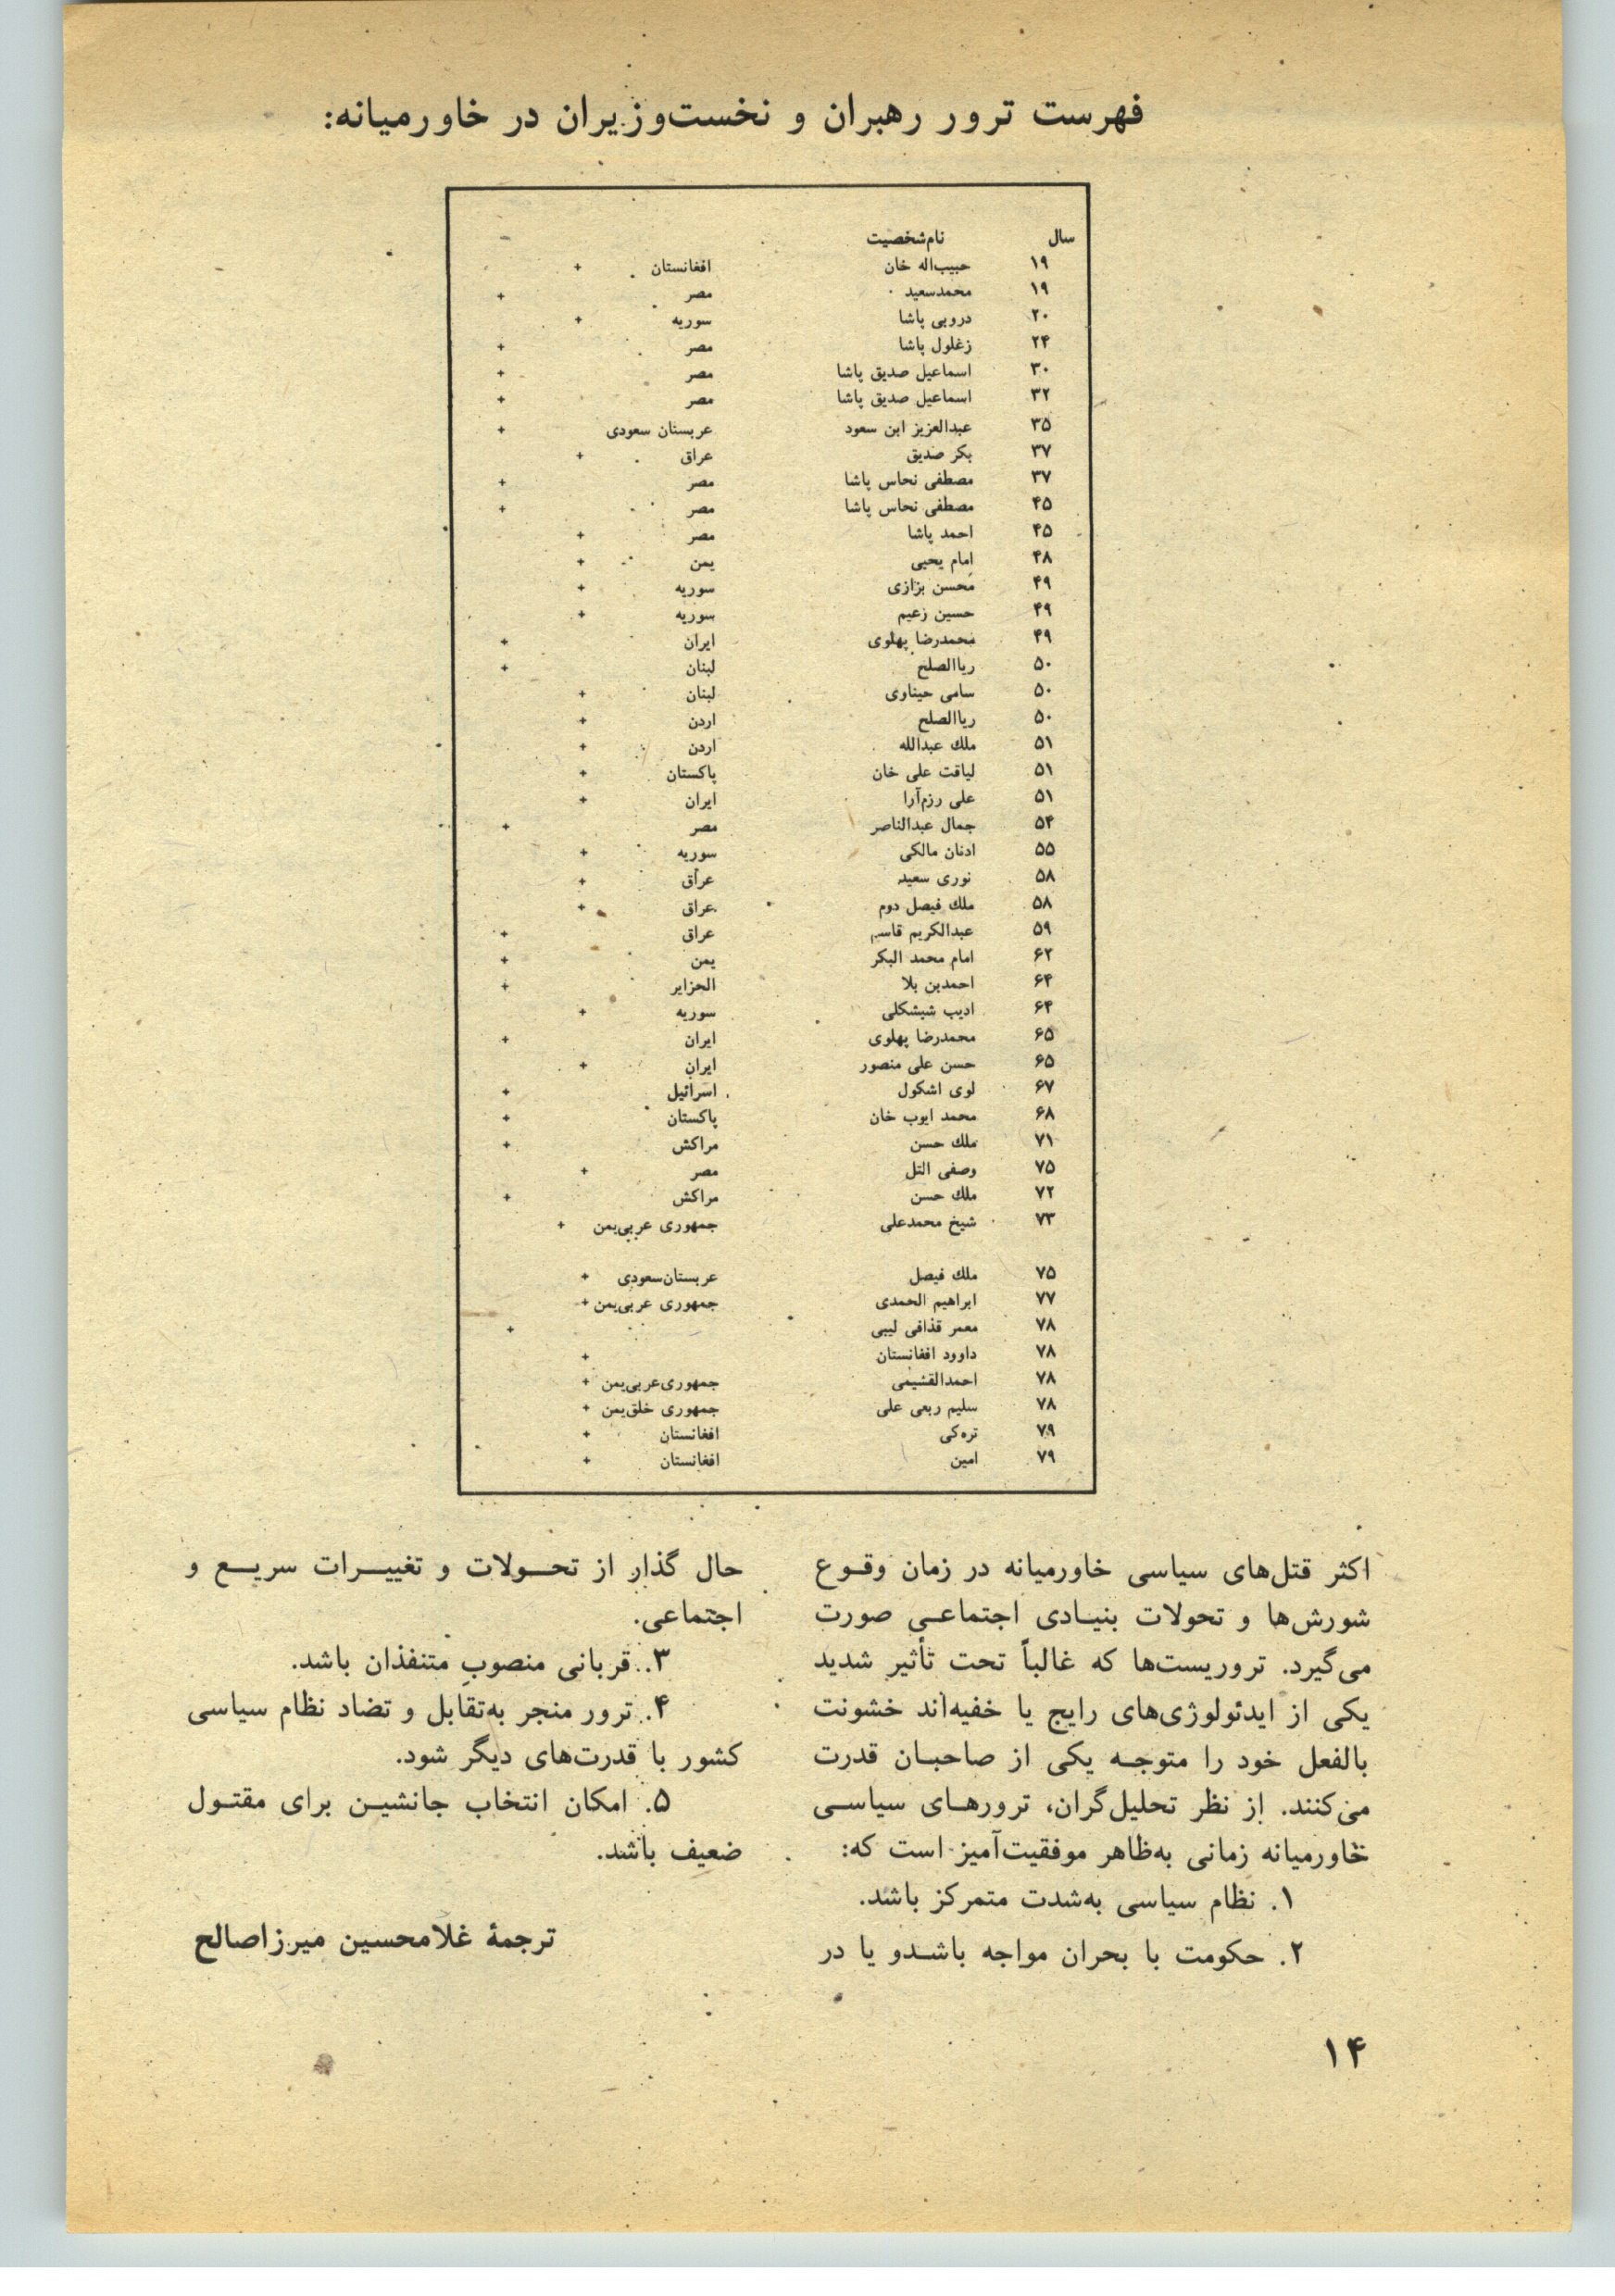 فهرست ترور رهبران و نخست‌وزیران در خاورمیانه:
سال نام‌شخصیت
۱۹ حبیب‌اله خان افغانستان +
۱۹ محمدسعید مصر +
۲۰ دروبی پاشا سوریه +
۲۴ زغلول پاشا مصر +
۳۰ اسماعیل صدیق پاشا مصر +
۳۲ اسماعیل صدیق پاشا مصر +
۳۵ عبدالعزیز ابن سعود عربستان سعودی +
۳۷ بکر صدیق عراق +
۳۷ مصطفی نحاس پاشا مصر +
۴۵ مصطفی نحاس پاشا مصر +
۴۵ احمد پاشا مصر +
۴۸ امام یحیی یمن +
۴۹ محسن بزازی سوریه +
۴۹ حسین زعیم سوریه +
۴۹ محمدرضا پهلوی ایران +
۵۰ ریاالصلح لبنان +
۵۰ سامی حیناوی لبنان +
۵۰ ریاالصلح اردن +
۵۱ ملك عبدالله اردن +
۵۱ لیاقت علی خان پاکستان +
۵۱ علی رزم‌آرا ایران +
۵۴ جمال عبدالناصر مصر +
۵۵ ادنان مالکی سوریه +
۵۸ نوری سعید عراق +
۵۸ ملك فیصل دوم عراق +
۵۹ عبدالکریم قاسم عراق +
۶۲ امام محمد البکر یمن +
۶۴ احمدبن بلا الجزایر +
۶۴ ادیب شیشکلی سوریه +
۶۵ محمدرضا پهلوی ایران +
۶۵ حسن علی منصور ایران +
۶۷ لوی اشکول اسرائیل +
۶۸ محمد ایوب خان پاکستان +
۷۱ ملك حسن مراکش +
۷۵ وصفی التل مصر +
۷۲ ملك حسن مراکش +
۷۳ شیخ محمدعلی جمهوری عربی‌یمن +
۷۵ ملك فیصل عربستان‌سعودی +
۷۷ ابراهیم الحمدی جمهوری عربی‌یمن +
۷۸ معمر قذافی لیبی +
۷۸ داوود افغانستان +
۷۸ احمدالقشیمی جمهوری‌عربی‌یمن +
۷۸ سلیم ربعی علی جمهوری خلق‌یمن +
۷۹ تره‌کی افغانستان +
۷۹ امین افغانستان +
اکثر قتل‌های سیاسی خاورمیانه در زمان وقوع
شورش‌ها و تحولات بنیادی اجتماعی صورت
می‌گیرد. تروریست‌ها که غالباً تحت تأثیر شدید
یکی از ایدئولوژی‌های رایج یا خفیه‌اند خشونت
بالفعل خود را متوجه یکی از صاحبان قدرت
می‌کنند. از نظر تحلیل‌گران، ترورهای سیاسی
خاورمیانه زمانی به‌ظاهر موفقیت‌آمیز است که:
۱. نظام سیاسی به‌شدت متمرکز باشد.
۲. حکومت با بحران مواجه باشدو یا در
حال گذار از تحولات و تغییرات سریع و
اجتماعی.
۳. قربانی منصوبِ متنفذان باشد.
۴. ترور منجر به‌تقابل و تضاد نظام سیاسی
کشور با قدرت‌های دیگر شود.
۵. امکان انتخاب جانشین برای مقتول
ضعیف باشد.
ترجمهٔ غلامحسین میرزاصالح
۱۴